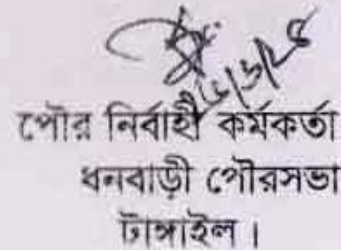 পৌর নির্বাহী কর্মকর্তা
ধনবাড়ী পৌরসভা
টাঙ্গাইল।